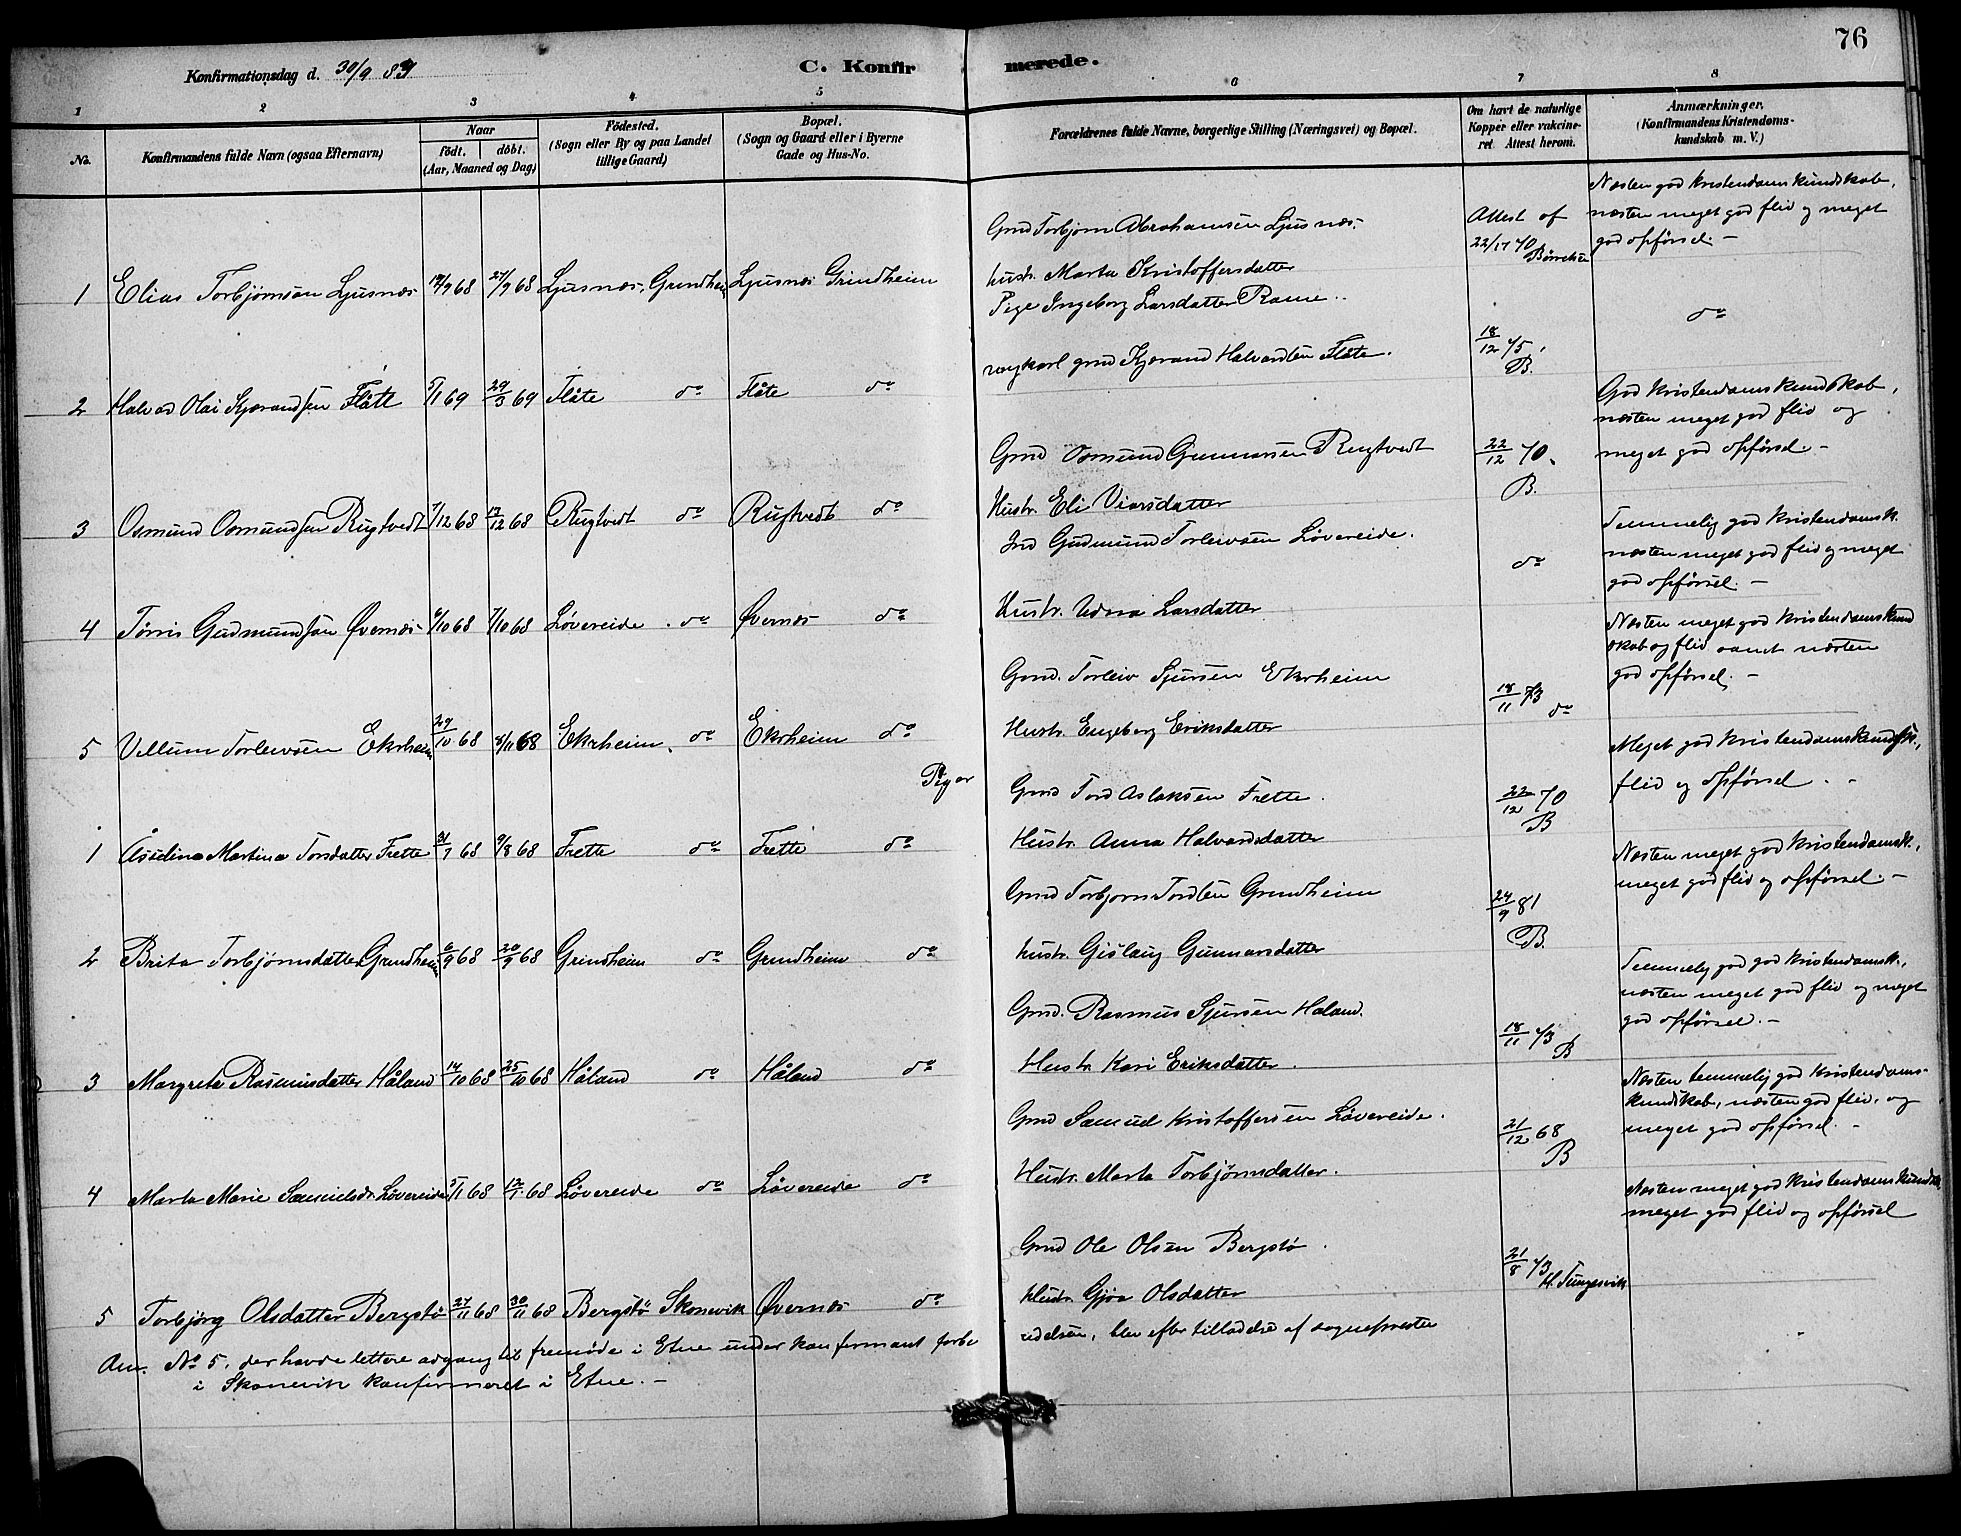 76
Konfirmationsdag d. 30/9 83
C. Konfirmerede.
1 2 3 4 5 6 7 8
No.
Konfirmandens fulde Navn (ogsaa Efternavn)
Naar
födt. döbt.
(Aar, Maaned og Dag)
Födested.
(Sogn eller By og paa Landet
tillige Gaard)
Bopæl.
(Sogn og Gaard eller i Byerne
Gade og Hus-No.
Forældrenes fulde Navne, borgerlige Stilling (Næringsvei) og Bopæl.
Om havt de naturlige
Kopper eller vakcine-
ret. Attest herom.
Anmærkninger.
(Konfirmandens Kristendoms-
kundskab m. V.)
1 Elias Torbjørnsøn Ljusnæs 27/9 68 Ljusnæs, Grindheim Ljusnæs Grindheim
Gmd Torbjørn Abrahamsen Ljusnæs.
Hustr. Marta Kristoffersdatter
Attest af
22/11 70 Børretsen
Næsten god Kristendomskundskab,
næsten meget god flid og meget
god opførsel. -
2 Halvard Olai Kjørandsen Flåte 5/1 69 29/3 69 Flåte do Flåte do
Pige Ingeborg Larsdatter Rame..
ungkarl gmd Kjørand Halvardsen Flåte.
18/12 75.
B.
do
3 Osmund Osmundsen Rugtvedt 7/12 68 13/12 68 Rugtvedt do Rugtvedt do
Gmd Osmund Gunnarsen Rugtvedt
Hustr. Eli Viarsdatter
22/12 70.
B.
God Kristendomskundskab,
næsten meget god flid og
meget god opførsel -
4 Tørris Gudmundsøn Øvernæs 6/10 68 7/10 68 Løvereide. do Øvernæs do
Ind Gudmund Torleivsen Løvereide.
Hustr. Udna Larsdatter
do
Temmelig god Kristendomsk.
næsten meget god flid og meget
god opførsel. -
5 Vellum Torleivsen Ekrheim 29/10 68 8/11 68 Ekrheim. do Ekrheim do
Gmd. Torleiv Sjursen Ekrheim
Hustr. Engeborg Eriksdatter
18/11 73 do
Næsten meget god Kristendomskund
skab og flid samt næsten
god opførsel. -
Piger
1 Åselina Martina Torsdatter Frette 31/7 68 9/8 68 Frette do Frette do
Gmd Tord Aslaksen Frette.
Hustr. Anna Halvardsdatter
22/12 70
B
Meget god Kristendomskundsk.,
flid og opførsel. -
2 Brita Torbjørnsdatter Grindheim 6/9 68 20/9 68 Grindheim do Grindheim do
Gmd Torbjørn Tordsen Grindheim
Hustr. Gislaug Gunnarsdatter
24/9 81
B.
Næsten meget god Kristendomsk.,
meget god flid og opførsel. -
3 Margreta Rasmusdatter Håland 14/10 68 25/10 68 Håland do Håland do
Gmd. Rasmus Sjursen Håland.
Hustr Kari Eriksdatter.
18/11 73 B
Temmelig god god Kristendomsk.,
næsten meget god flid og meget
god opførsel. -
4 Marta Marie Samuelsdr Løvereide 5/1 68 12/1 68 Løvereide do Løvereide do
Gmd Samuel Kristoffersen Løvereide.
Hustr. Marta Torbjørnsdatter.
21/12 68
B
Næsten temmelig god Kristendoms-
kundskab, næsten god flid, og
meget god opførsel. -
5 Torbjörg Olsdatter Bergstø 27/11 68 30/11 68 Bergstø Skonevik Øvernæs do
Gmd Ole Olsen Bergstø.
Hustr. Gjøa Olsdatter
21/8 73 H. Tungesvik
Næsten meget god Kristendomskundsk
meget god flid og opførsel
Anm. No 5, der havde lettere adgang til fremøde i Etne under konfirmant forbe
redelsen, blev efter tilladelse af sognepresten
i Skonevik konfirmeret i Etne. -